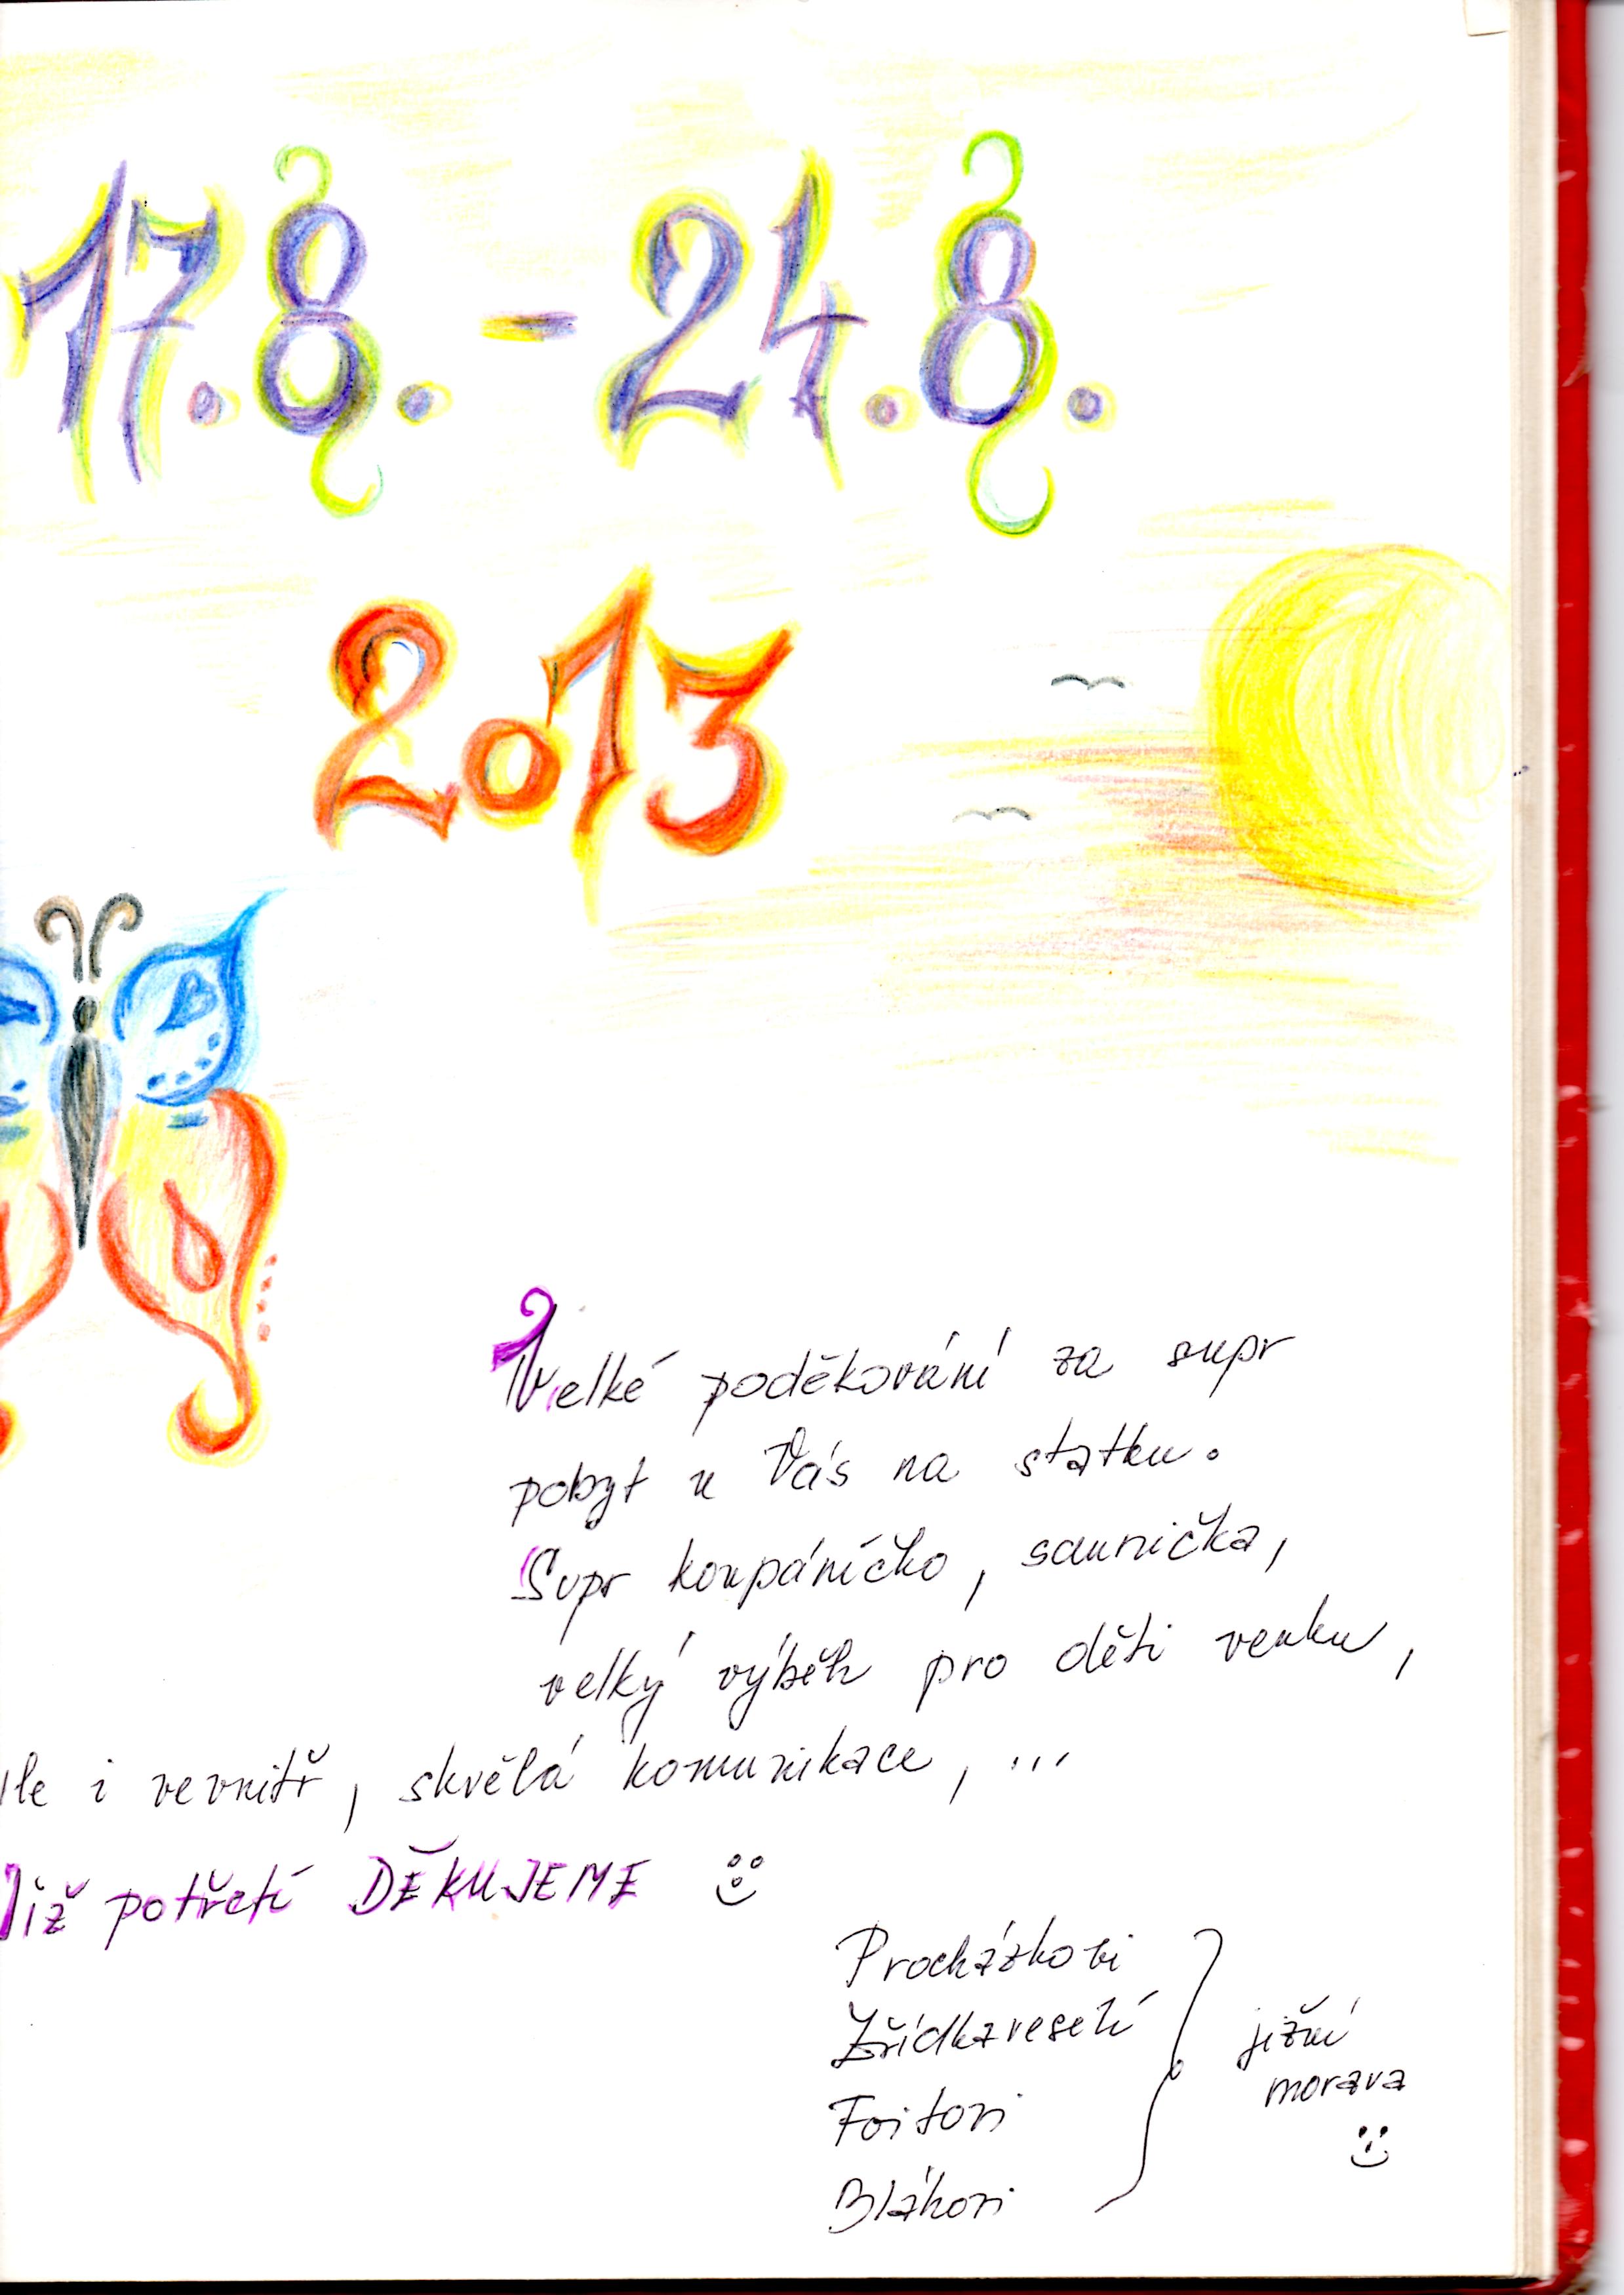 17.8. - 24.8.
2013
Velké poděkování za supr
pobyt u Vás na statku.
Supr koupáníčko, saunička,
velký výběh pro děti venku,
ale i vevnitř, skvělá komunikace, ...
Již potřetí DĚKUJEME
Procházkovi
Zřídkaveselí
Foitovi
Bláhovi
jižní
morava